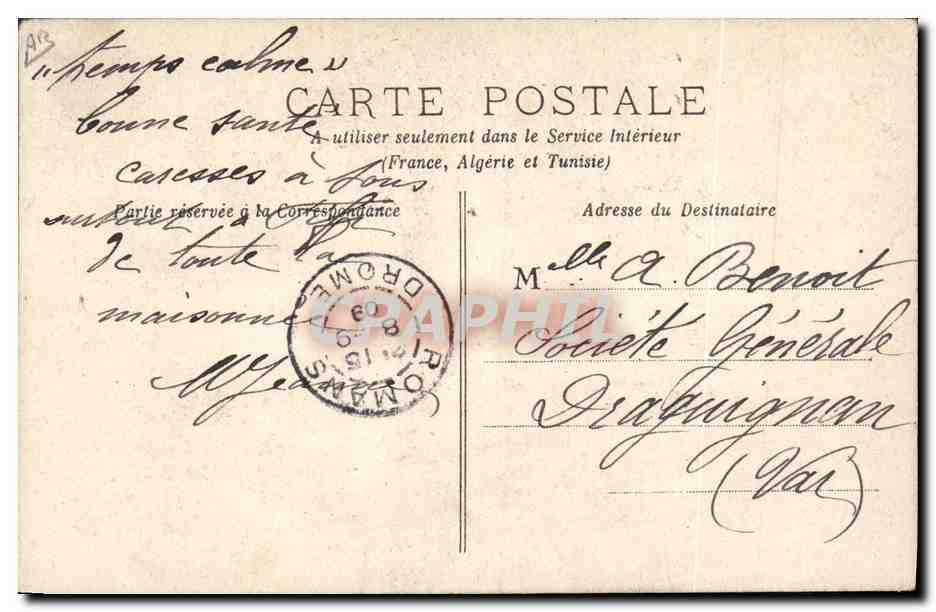 AR
"temps calme"
CARTE POSTALE
bonne santé
A utiliser seulement dans le Service Intérieur
(France, Algérie et Tunisie)
caresses à tous
Partie réservée à la Correspondance
surtout à
de toute la
maisonnée
Adresse du Destinataire
Mlle A. Benoit
Société Générale
Draguignan
(Var)
ROMANS
DROME
15
8 -9
09
CPAPHIL